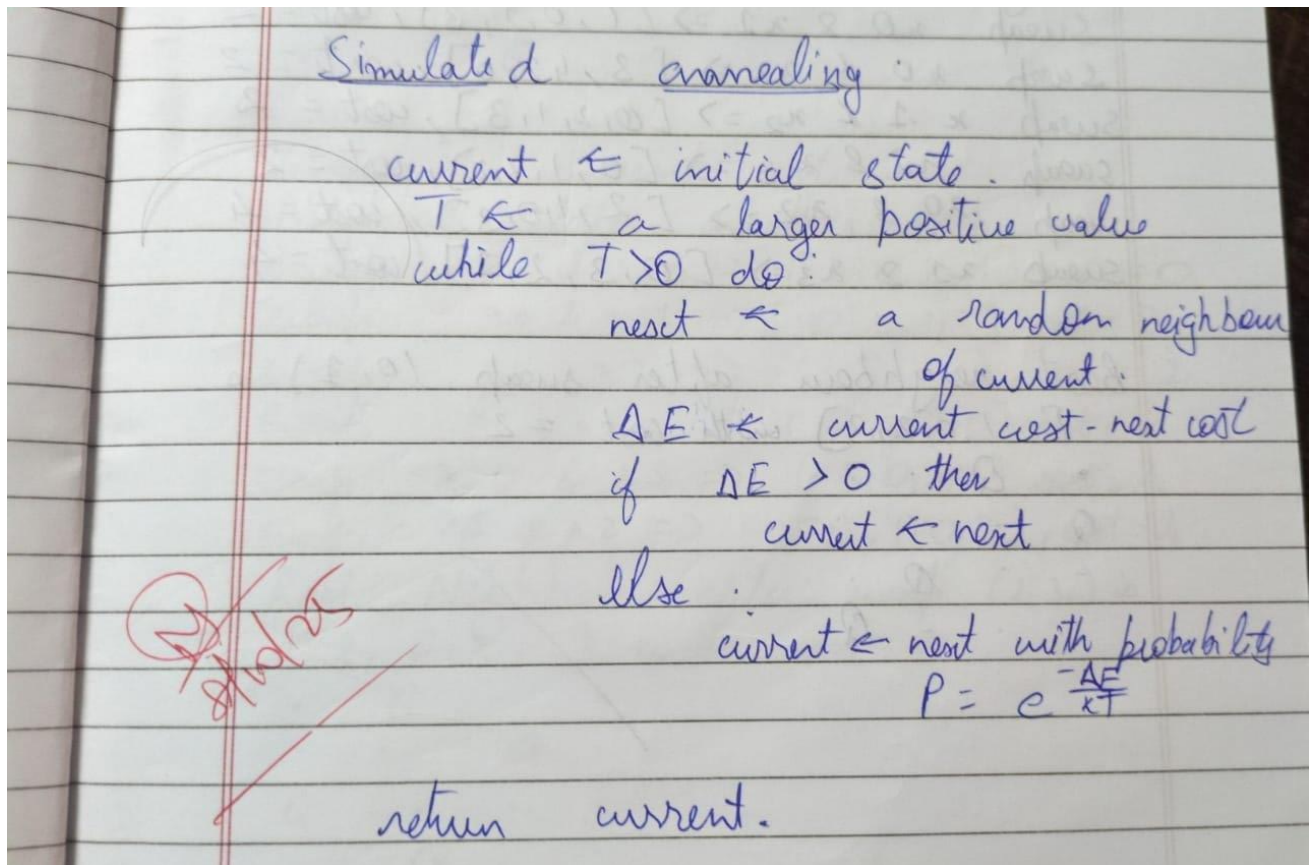 Simulated annealing
current ← initial state.
T ← a larger positive value
while T>0 do:
next ← a random neighbour
of current.
ΔE ← current cost - next cost
if ΔE > 0 then
current ← next
else
current ← next with probability
P = e^(-ΔE/kT)
return current.